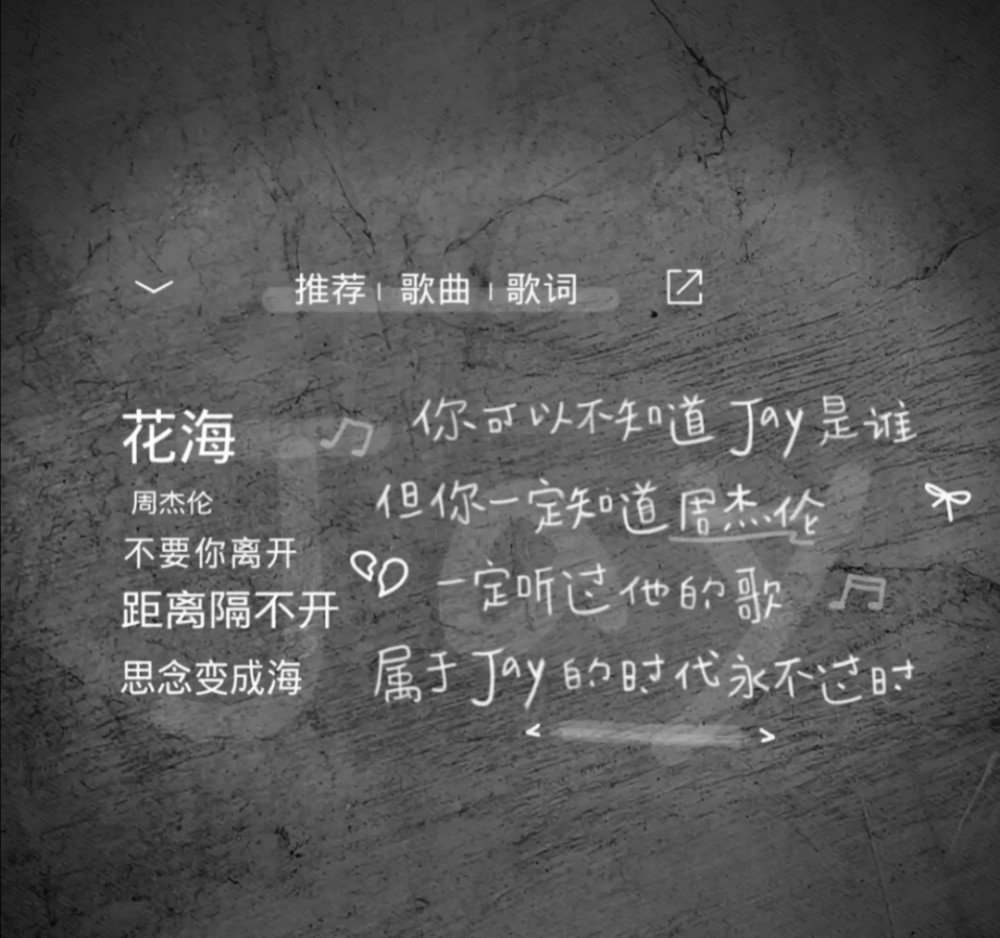 推荐 | 歌曲 | 歌词
花海
周杰伦
不要你离开
距离隔不开
思念变成海
你可以不知道 Jay 是谁
但你一定知道周杰伦
一定听过他的歌
属于 Jay 的时代永不过时
Jay